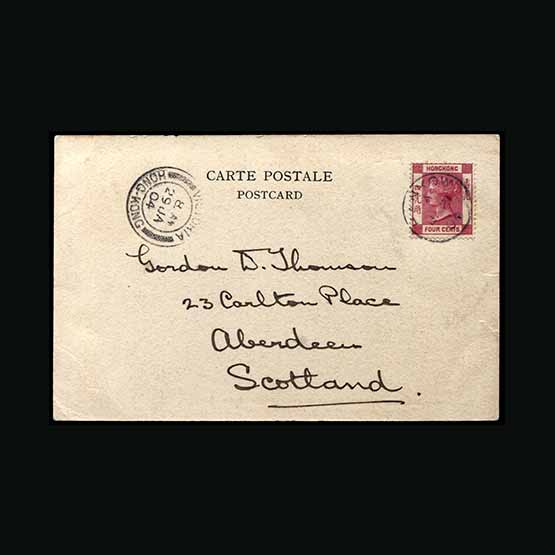 CARTE POSTALE
POSTCARD
VICTORIA
HONG-KONG
8 AM
29 JA
04
HONGKONG
FOUR CENTS
Gordon D. Thomson
23 Carlton Place
Aberdeen
Scotland.